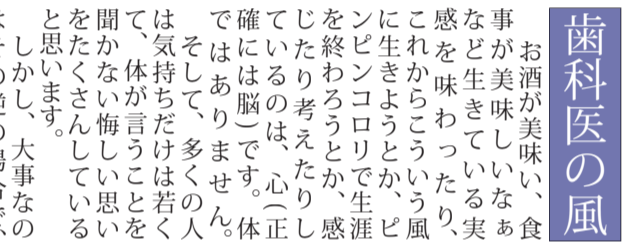 歯科医の風
お酒が美味い、食
事が美味しいなぁ
など生きている実
感を味わったり、
これからこういう風
に生きようとか、ピ
ンピンコロリで生涯
を終わろうとか、感
じたり考えたりし
ているのは、心(正
確には脳)です。体
ではありません。
そして、多くの人
は気持ちだけは若く
て、体が言うことを
聞かない悔しい思い
をたくさんしている
と思います。
しかし、大事なの